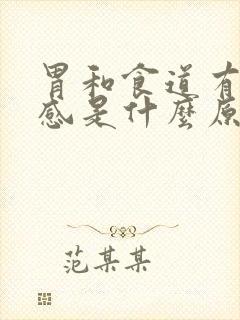 胃和食道有
感是什麼原
范某某